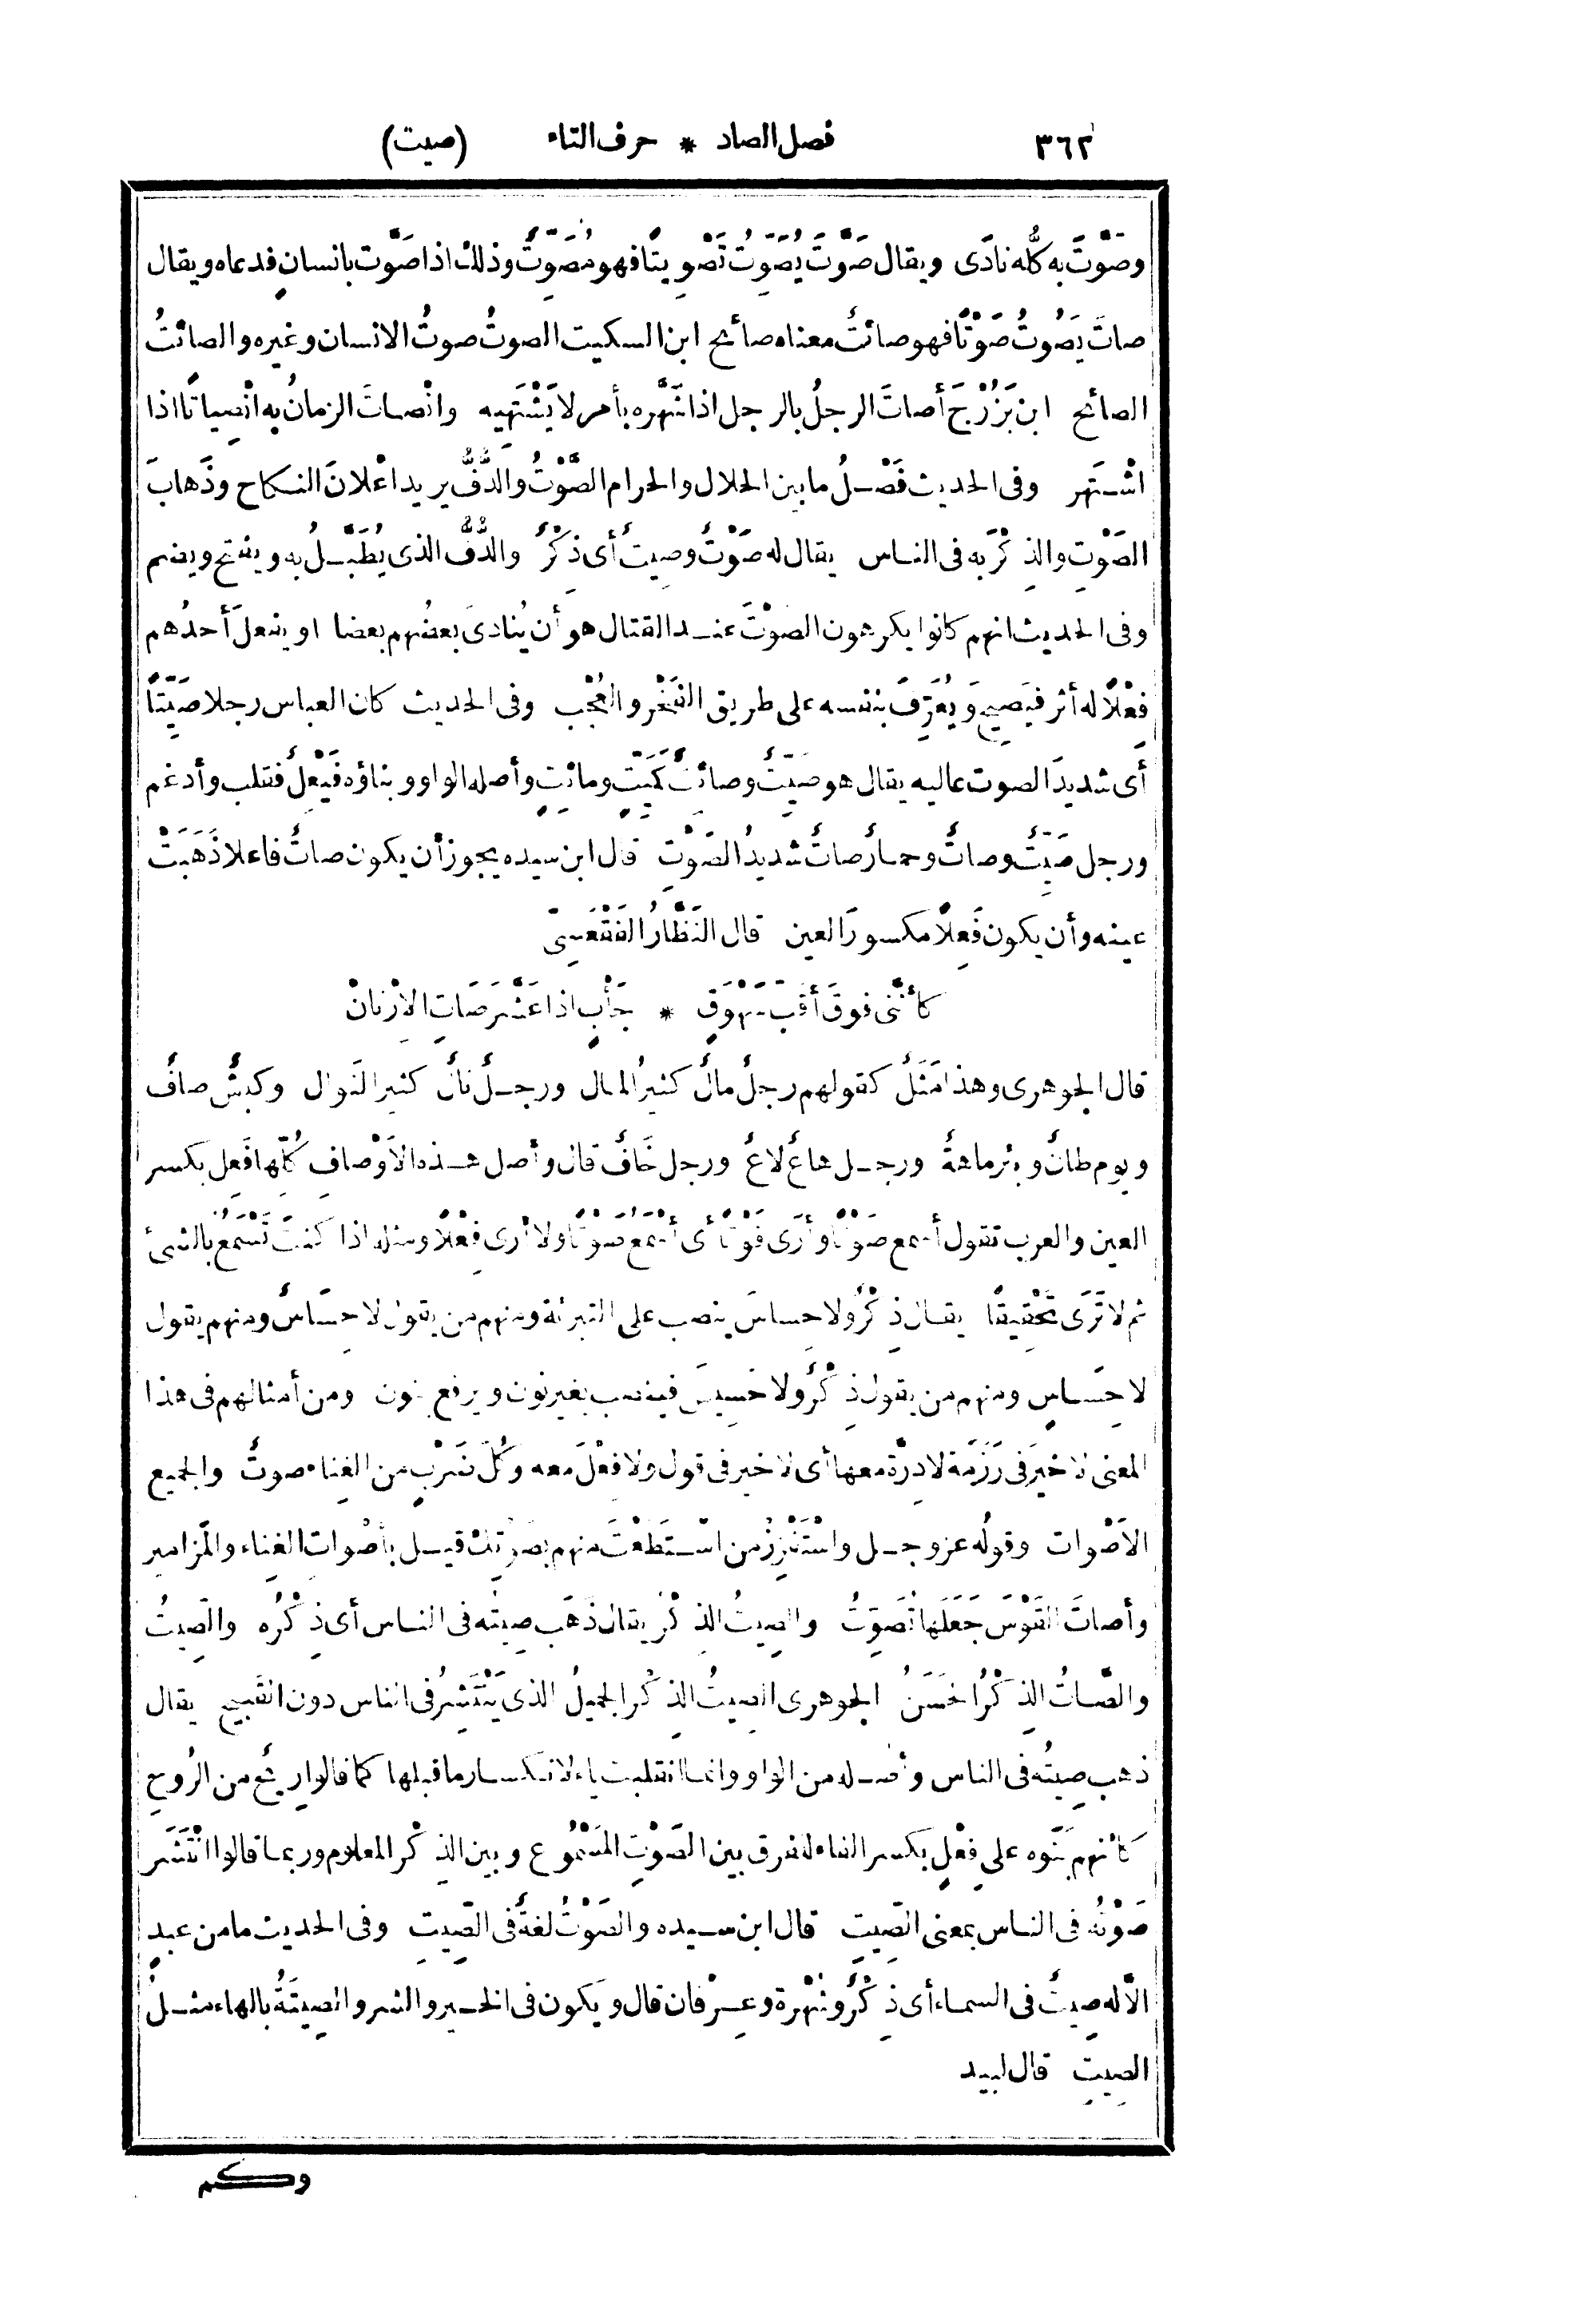 ٣٦٢ فصل الصاد * حرف التاء (صيت)
وصَوَّتَ به كُلُّه نادَى ويقال صَوَّتَ يُصَوِّتُ تَصْوِيتًا فهو مُصَوِّتٌ وذلك اذا صَوَّت بانسانٍ فدعاه ويقال
صاتَ يَصُوتُ صَوْتًا فهو صائتٌ معناه صائح ابن السكيت الصوتُ صوتُ الانسان وغيره والصائتُ
الصائح ابن بَزُرْجَ أصاتَ الرجلُ بالرجل اذا شَهَّره بأمر لا يَشْتَهِيه وانْصاتَ الزمانُ به انْصِياتًا اذا
اشْتَهر وفى الحديث فَصْلُ ما بين الحلال والحرام الصَّوْتُ والدُّفُّ يريد اعْلانَ النكاح وذَهابَ
الصَوْتِ والذِكْرَ به فى الناس يقال له صَوْتٌ وصِيتٌ أى ذِكْرٌ والدُّفُّ الذى يُطَبَّلُ به ويفتح ويضم
وفى الحديث انهم كانوا يكرهون الصَوْتَ عند القتال هو أن يُنادىَ بعضُهم بعضا او يفعلَ أحدُهم
فِعْلًا له أثر فيَصِيحَ ويُعَرِّفَ بنفسه على طريق الفَخْر والعُجْب وفى الحديث كان العباس رجلا صَيِّتًا
أى شديدَ الصوت عاليه يقال هو صَيِّتٌ وصائتٌ كَمَيِّتٍ ومائتٍ وأصله الواو وبناؤه فَيْعِلٌ فقلب وأدغم
ورجل صَيِّتٌ وصاتٌ وحمارٌ صاتٌ شديدُ الصَوْتِ قال ابن سيده يجوز أن يكون صاتٌ فاعلا ذَهَبَتْ
عينه وأن يكون فَعِلًا مكسورَ العين قال النَظَّارُ الفَقْعَسِىّ
كأنَّنى فوقَ أَقَبَّ سَهْوَقٍ * جَأْبٍ اذا عَشَّرَ صَاتِ الإرْنانْ
قال الجوهرى وهذا مَثَلٌ كقولهم رجلٌ مالٌ كثيرُ المال ورجلٌ نالٌ كثير النَوال وكبشٌ صافٌ
ويوم طانٌ وبئر ماهةٌ ورجل هاعٌ لاعٌ ورجل خَافٌ قال وأصل هذه الأوْصافِ كُلِّها فَعِل بكسر
العين والعرب تقول أسمع صَوْتًا وأرَى فَوْتًا أى أسْمَعُ صَوْتًا ولا أرَى فِعْلًا ومثله اذا كنتَ تَسْمَعُ بالشئ
ثم لا تَرَى تَحْقِيقًا يقال ذِكْرٌ ولا حِساسَ ينصب على التبرئة ومنهم من يقول لا حِسَاسٌ ومنهم يقول
لا حِسَاسٍ ومنهم من يقول ذِكْرٌ ولا حَسِيسَ فينصب بغير نون ويرفع بنون ومن أمثالهم فى هذا
المعنى لا خيرَ فى رَزَمَة لا دِرَّة معها أى لا خير فى قول ولا فِعْلَ معه وكُلُّ ضَرْبٍ من الغِناء صوتٌ والجميع
الأصْوات وقولُه عز وجل واسْتَفْزِزْ من اسْتَطَعْتَ منهم بصَوْتِك قيل بأصْوات الغِناء والمَزامير
وأصاتَ القَوْسَ جَعَلَها تُصَوِّتُ والصِيتُ الذِكْرُ يقال ذهَب صِيتُه فى الناس أى ذِكْرُه والصِيتُ
والصَّاتُ الذِكْرُ الحَسَنُ الجوهرى الصِيتُ الذِكْر الجميلُ الذى يَنْتَشِرُ فى الناس دون القبيح يقال
ذهب صِيتُه فى الناس وأصله من الواو وانما انقلبت ياء لانكسار ما قبلها كما قالوا رِيحٌ من الرُوحِ
كأنهم بَنَوه على فِعْلٍ بكسر الفاء للفرق بين الصَوْتِ المَسْمُوع وبين الذِكْر المعلوم وربما قالوا انْتَشَر
صَوْتُه فى الناس بمعنى الصِيتِ قال ابن سيده والصَوْتُ لغةٌ فى الصِّيتِ وفى الحديث ما من عبدٍ
الّا له صِيتٌ فى السماء أى ذِكْرٌ وشُهْرة وعِرْفان قال ويَكون فى الخير والشر والصِيتَةُ بالهاء مثلُ
الصِيتِ قال لبيد
وكم